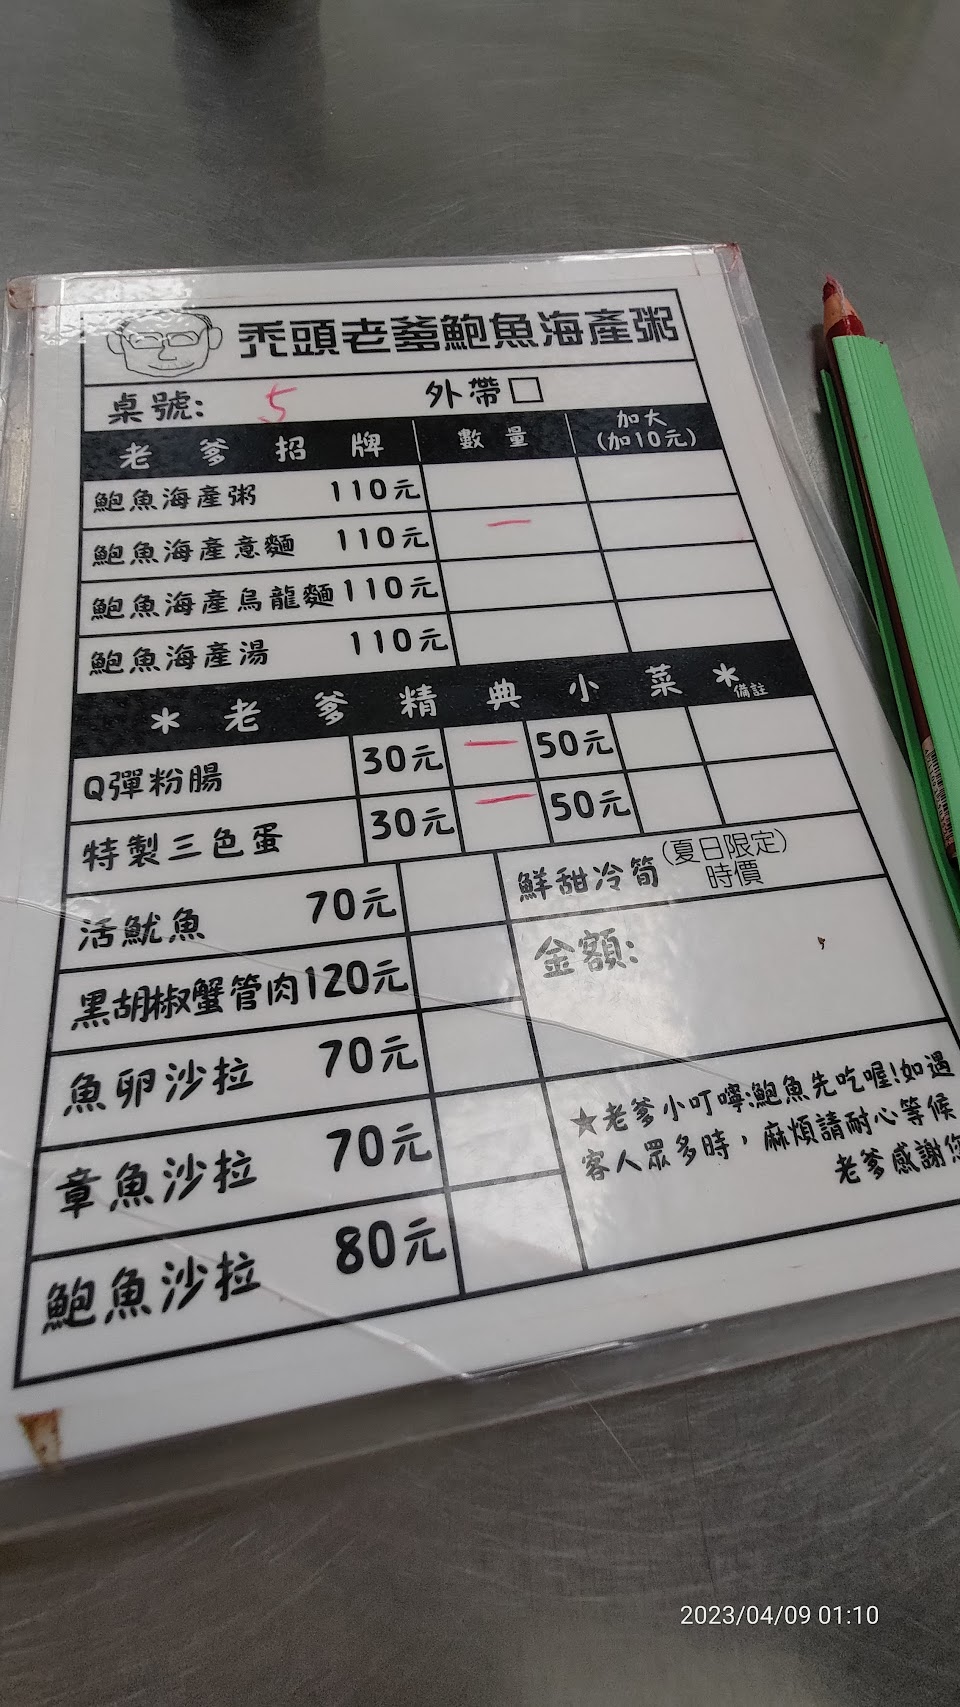 禿頭老爹鮑魚海產粥
桌號: 5 外帶□
老爹招牌 數量 加大(加10元)
鮑魚海產粥 110元
鮑魚海產意麵 110元 一
鮑魚海產烏龍麵 110元
鮑魚海產湯 110元
*老爹精典小菜* 備註
Q彈粉腸 30元 一 50元
特製三色蛋 30元 一 50元
活魷魚 70元
鮮甜冷筍(夏日限定)時價
黑胡椒蟹管肉120元
金額:
魚卵沙拉 70元
章魚沙拉 70元
鮑魚沙拉 80元
★老爹小叮嚀:鮑魚先吃喔!如遇
客人眾多時,麻煩請耐心等候
老爹感謝您
2023/04/09 01:10